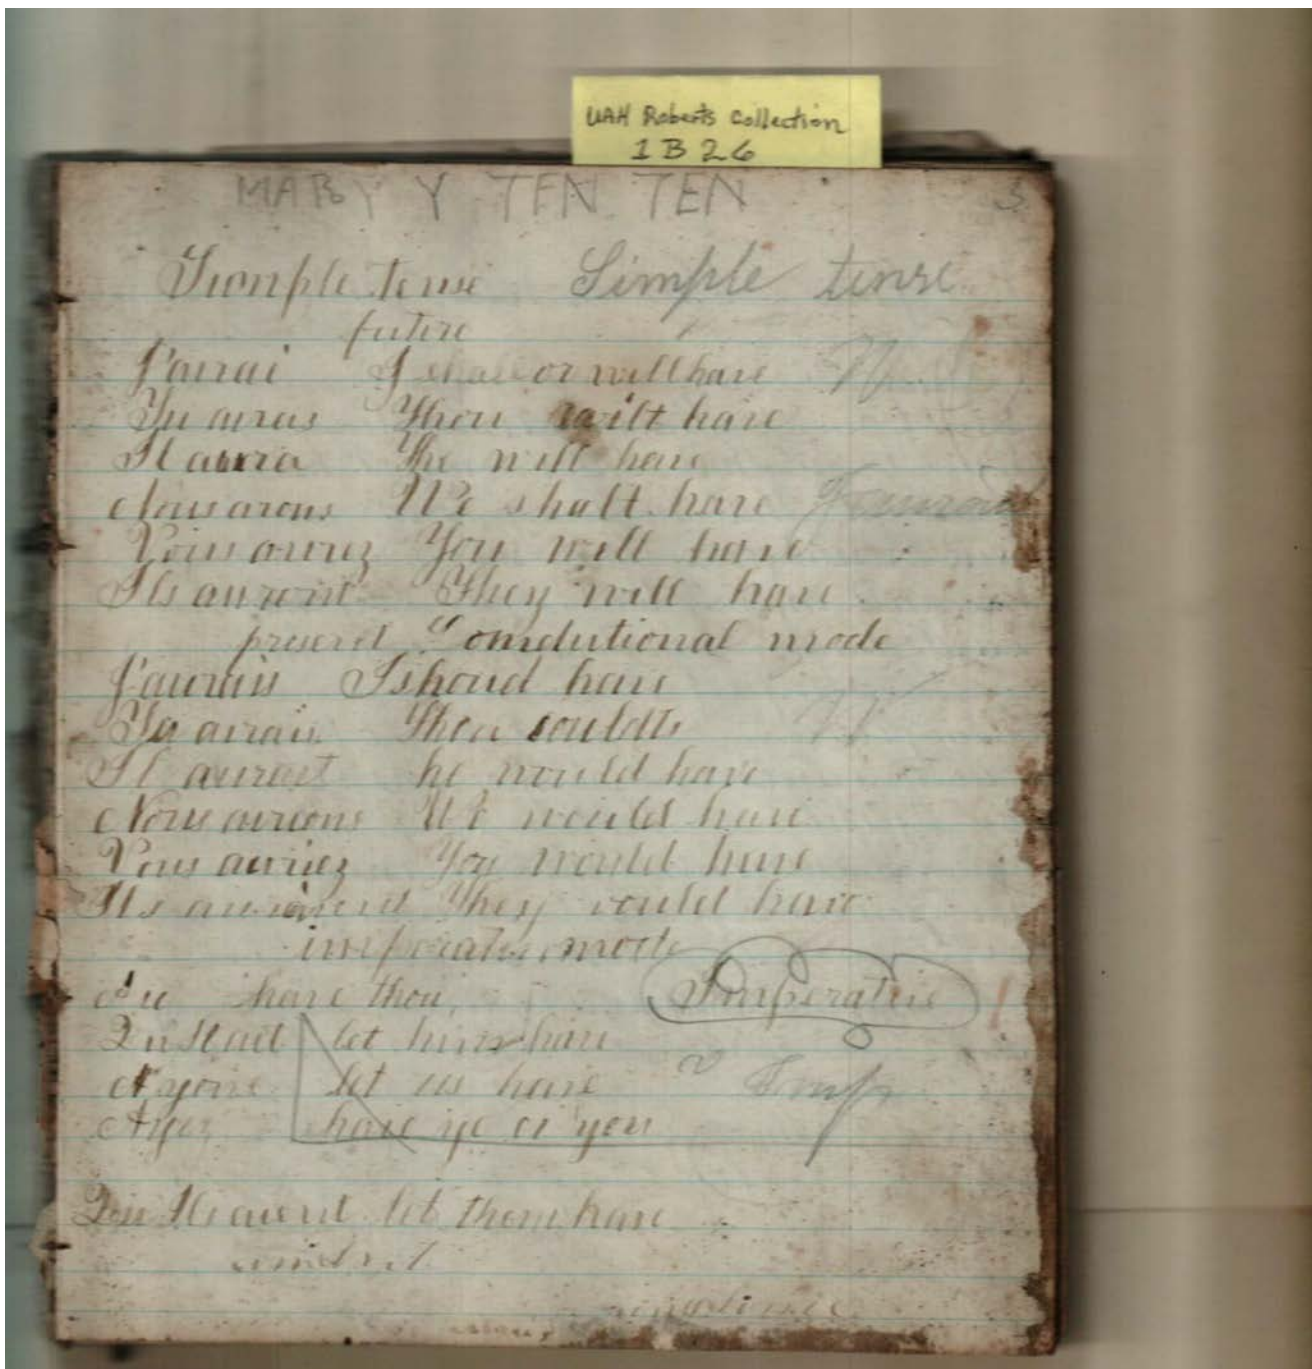 UAH Roberts Collection
1 B 26
MARY Y TEN TEN 3
Simple tense Simple tense
future
J'aurai I shall or will have
Tu auras Thou wilt have
Il aura He will have
Nous arons We shall have
Vous aurez You will have
Ils auront They will have
present Conditional mode
J'aurais I should have
Tu aurais Thou
Il aurait he would have
Nous aurions We would have
Vous auriez You would have
Ils auraient They would have
imperative mode
have thou Imperative
let him have
Ayons let us have Imp
Ayez have ye or you
let them have